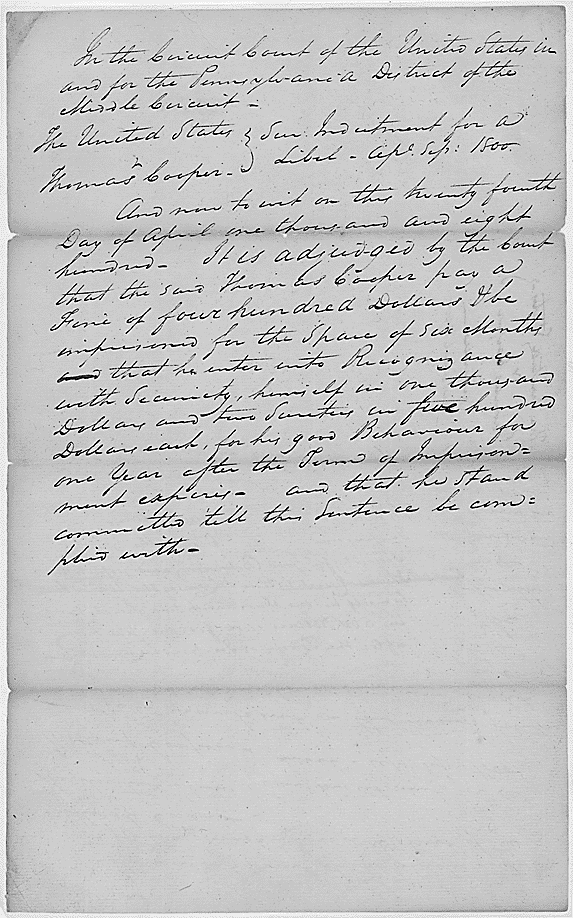 In the Circuit Court of the United States in
and for the Pennsylvania District of the
Middle Circuit -
The United States } Sur. Indictment for a
Thomas Cooper - Libel - Apl. Sess: 1800.
And now to wit on this twenty fourth
Day of April one thousand and eight
hundred - It is adjudged by the Court
that the said Thomas Cooper pay a
Fine of four hundred Dollars & be
imprisoned for the Space of six Months
and that he enter into Recognizance
with Security, himself in one thousand
Dollars and two Sureties in five hundred
Dollars each, for his good Behaviour for
one Year after the Term of Imprison=
ment expires - and that he stand
committed till this Sentence be com=
plied with -